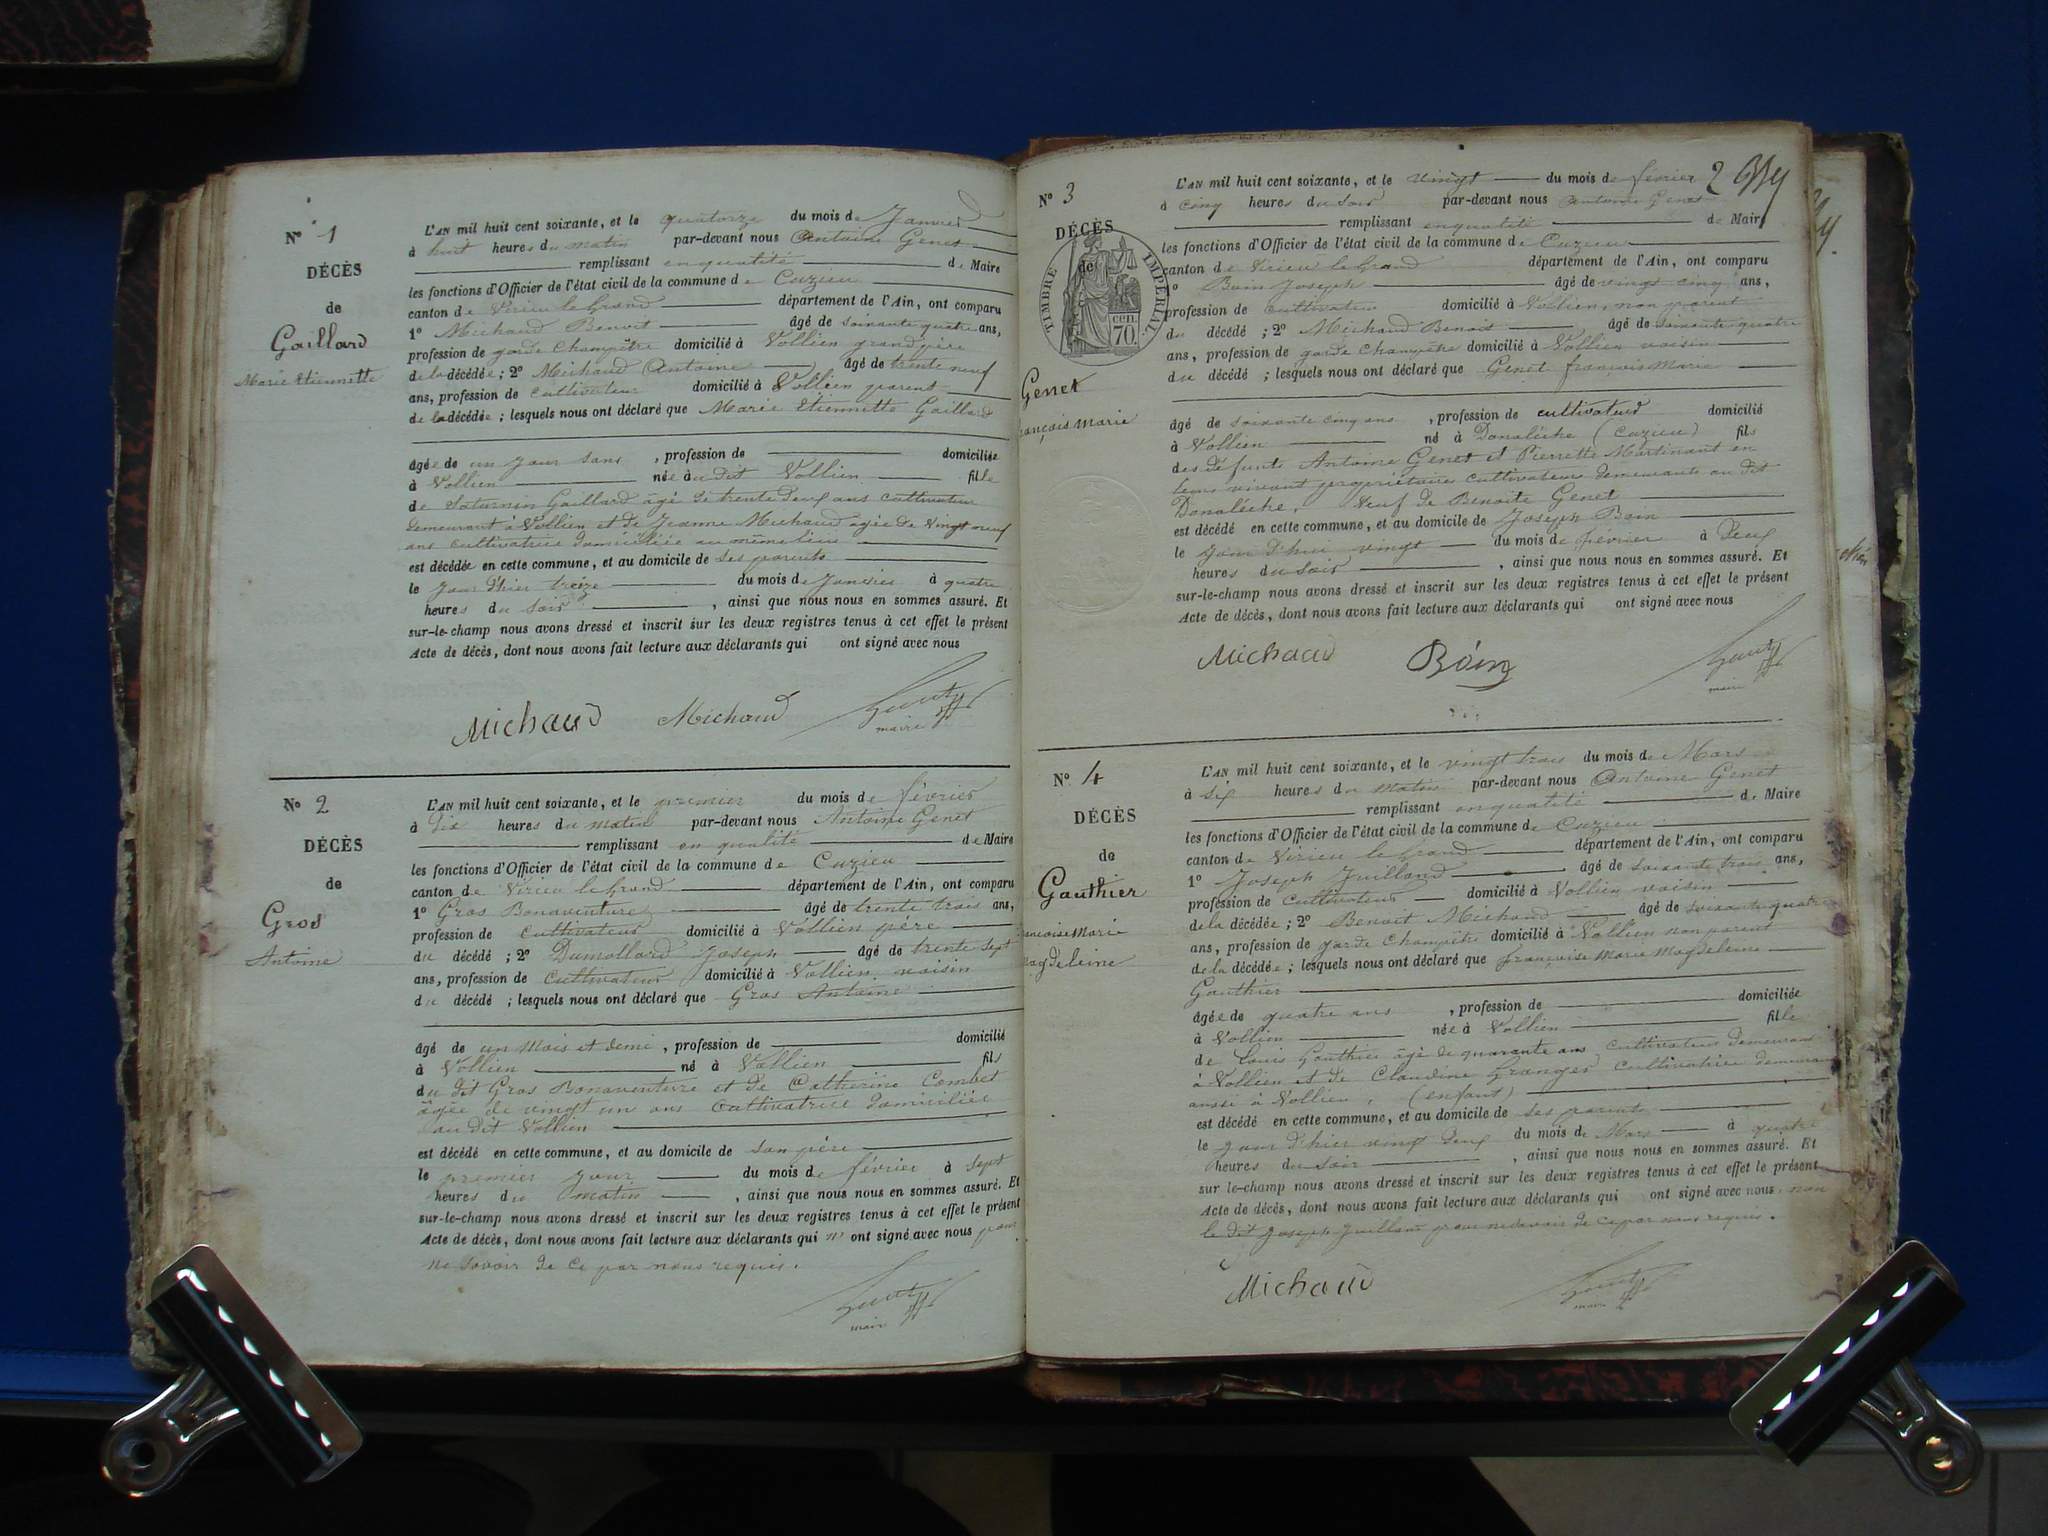 N° 1
DÉCÈS
de
Gaillard
Marie Etiennette
L'AN mil huit cent soixante, et le quatorze du mois de Janvier
à huit heures du matin par-devant nous Antoine Genet
remplissant en qualité de Maire
les fonctions d'Officier de l'état civil de la commune de Cuzieu
canton de Virieu le Grand département de l'Ain, ont comparu
1° Michaud Benoit âgé de soixante quatre ans,
profession de garde champêtre domicilié à Vollien grand père
de la décédée ; 2° Michaud Antoine âgé de trente neuf
ans, profession de cultivateur domicilié à Vollien parent
de la décédée ; lesquels nous ont déclaré que Marie Etiennette Gaillard
âgée de un jour sans , profession de domiciliée
à Vollien née au dit Vollien fille
de Saturnin Gaillard âgé de trente deux ans cultivateur
demeurant à Vollien et de Jeanne Michaud agée de vingt neuf
ans cultivatrice domiciliée au même lieu
est décédée en cette commune, et au domicile de ses parents
le jour d'hier treize du mois de Janvier à quatre
heures du soir , ainsi que nous nous en sommes assuré. Et
sur-le-champ nous avons dressé et inscrit sur les deux registres tenus à cet effet le présent
Acte de décès, dont nous avons fait lecture aux déclarants qui ont signé avec nous
Michaud Michaud Genet
maire
N° 2
DÉCÈS
de
Gros
Antoine
L'AN mil huit cent soixante, et le premier du mois de février
à dix heures du matin par-devant nous Antoine Genet
remplissant en qualité de Maire
les fonctions d'Officier de l'état civil de la commune de Cuzieu
canton de Virieu le Grand département de l'Ain, ont comparu
1° Gros Bonaventure âgé de trente trois ans,
profession de cultivateur domicilié à Vollien père
du décédé ; 2° Dumollard Joseph âgé de trente sept
ans, profession de cultivateur domicilié à Vollien voisin
du décédé ; lesquels nous ont déclaré que Gros Antoine
âgé de un mois et demi , profession de domicilié
à Vollien né à Vollien fils
du dit Gros Bonaventure et de Catherine Combet
âgée de vingt un ans cultivatrice domiciliée
au dit Vollien
est décédé en cette commune, et au domicile de son père
le premier jour du mois de février à sept
heures du matin , ainsi que nous nous en sommes assuré. Et
sur-le-champ nous avons dressé et inscrit sur les deux registres tenus à cet effet le présent
Acte de décès, dont nous avons fait lecture aux déclarants qui n' ont signé avec nous pour
ne savoir de ce par nous requis.
Genet
maire
2
N° 3
DÉCÈS
de
TIMBRE IMPÉRIAL.
70. cen.
Genet
françois Marie
L'AN mil huit cent soixante, et le vingt du mois de février
à cinq heures du soir par-devant nous Antoine Genet
remplissant en qualité de Maire
les fonctions d'Officier de l'état civil de la commune de Cuzieu
canton de Virieu le Grand département de l'Ain, ont comparu
1° Boin Joseph âgé de vingt cinq ans,
profession de cultivateur domicilié à Vollien, non parent
du décédé ; 2° Michaud Benoit âgé de soixante quatre
ans, profession de garde champêtre domicilié à Vollien voisin
du décédé ; lesquels nous ont déclaré que Genet françois Marie
âgé de soixante cinq ans , profession de cultivateur domicilié
à Vollien né à Donalèche (cuzieu) fils
des défunts Antoine Genet et Pierrette Martinant en
leurs vivant propriétaires cultivateurs demeurants au dit
Donalèche, veuf de Benoite Genet
est décédé en cette commune, et au domicile de Joseph Boin
le jour d'hui vingt du mois de février à deux
heures du soir , ainsi que nous nous en sommes assuré. Et
sur-le-champ nous avons dressé et inscrit sur les deux registres tenus à cet effet le présent
Acte de décès, dont nous avons fait lecture aux déclarants qui ont signé avec nous
Michaud Boin Genet
maire
N° 4
DÉCÈS
de
Gauthier
françoise Marie
Magdeleine
L'AN mil huit cent soixante, et le vingt trois du mois de Mars
à six heures du matin par-devant nous Antoine Genet
remplissant en qualité de Maire
les fonctions d'Officier de l'état civil de la commune de Cuzieu
canton de Virieu le Grand département de l'Ain, ont comparu
1° Joseph Juilland âgé de soixante trois ans,
profession de cultivateur domicilié à Vollien voisin
de la décédée ; 2° Benoit Michaud âgé de soixante quatre
ans, profession de garde champêtre domicilié à Vollien non parent
de la décédée ; lesquels nous ont déclaré que françoise Marie Magdeleine
Gauthier
âgée de quatre ans , profession de domiciliée
à Vollien née à Vollien fille
de Louis Gauthier âgé de quarante ans cultivateur demeurant
à Vollien et de Claudine Granger cultivatrice demeurant
aussi à Vollien, (enfant)
est décédé en cette commune, et au domicile de ses parents
le jour d'hier vingt deux du mois de Mars à quatre
heures du soir , ainsi que nous nous en sommes assuré. Et
sur le-champ nous avons dressé et inscrit sur les deux registres tenus à cet effet le présent
Acte de décès, dont nous avons fait lecture aux déclarants qui ont signé avec nous non
le dit Joseph Juilland pour ne savoir de ce par nous requis.
Michaud Genet
maire